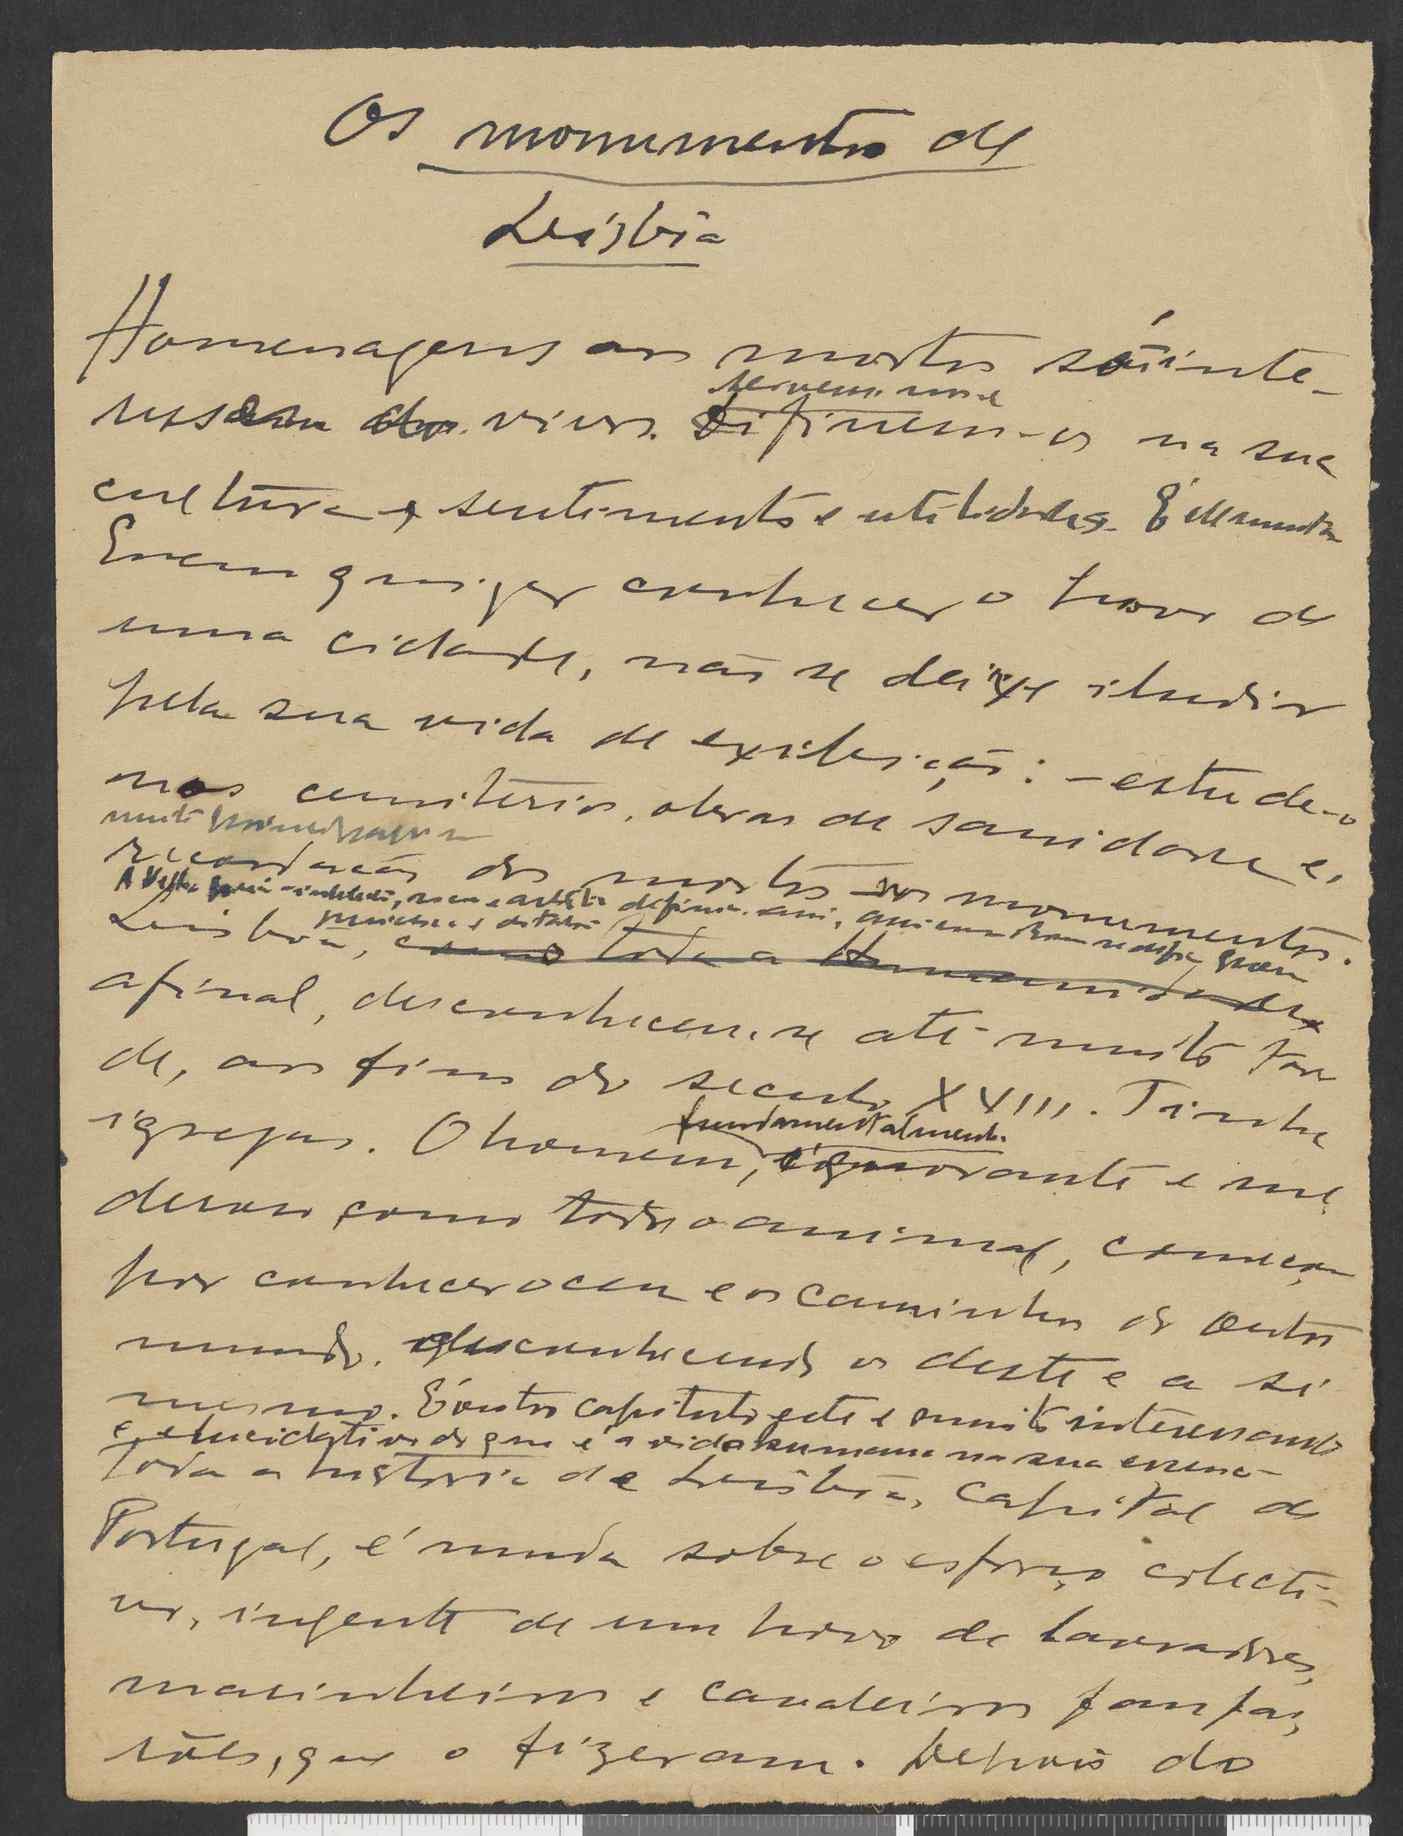 Os monumentos de
Lisbôa
Homenagens aos mortos só inte-
ressam aos vivos. Difinem-os na sua
servem-nos e
cultura, sentimentos e utilidades. É elementar
Quem quizer conhecer o povo de
uma cidade, não se deixe iludir
pela sua vida de exibição: - estude-o
nos cemitérios, obras de sanidade e,
muito
recordação dos mortos nos monumentos.
A Velha
Lisbôa, como toda a Humanidade
afinal, desconheceu-se até muito tar
de, aos fins do seculo XVIII. Tinha
igrejas. O homem, ignorante e me
fundamentalmente
droso como todo o animal, começou
por conhecer o ceu e os caminhos do outro
mundo, desconhecendo os deste e a si
mesmo. É outro capitulo este e muito interessante
e elucidativo do que é a vida humana na sua essencia
Toda a historia de Lisbôa, capital de
Portugal, é muda sobre o esforço colecti-
vo, ingente de um povo de lavradores,
marinheiros e cavaleiros fanfar
rões, que o fizeram. Depois do